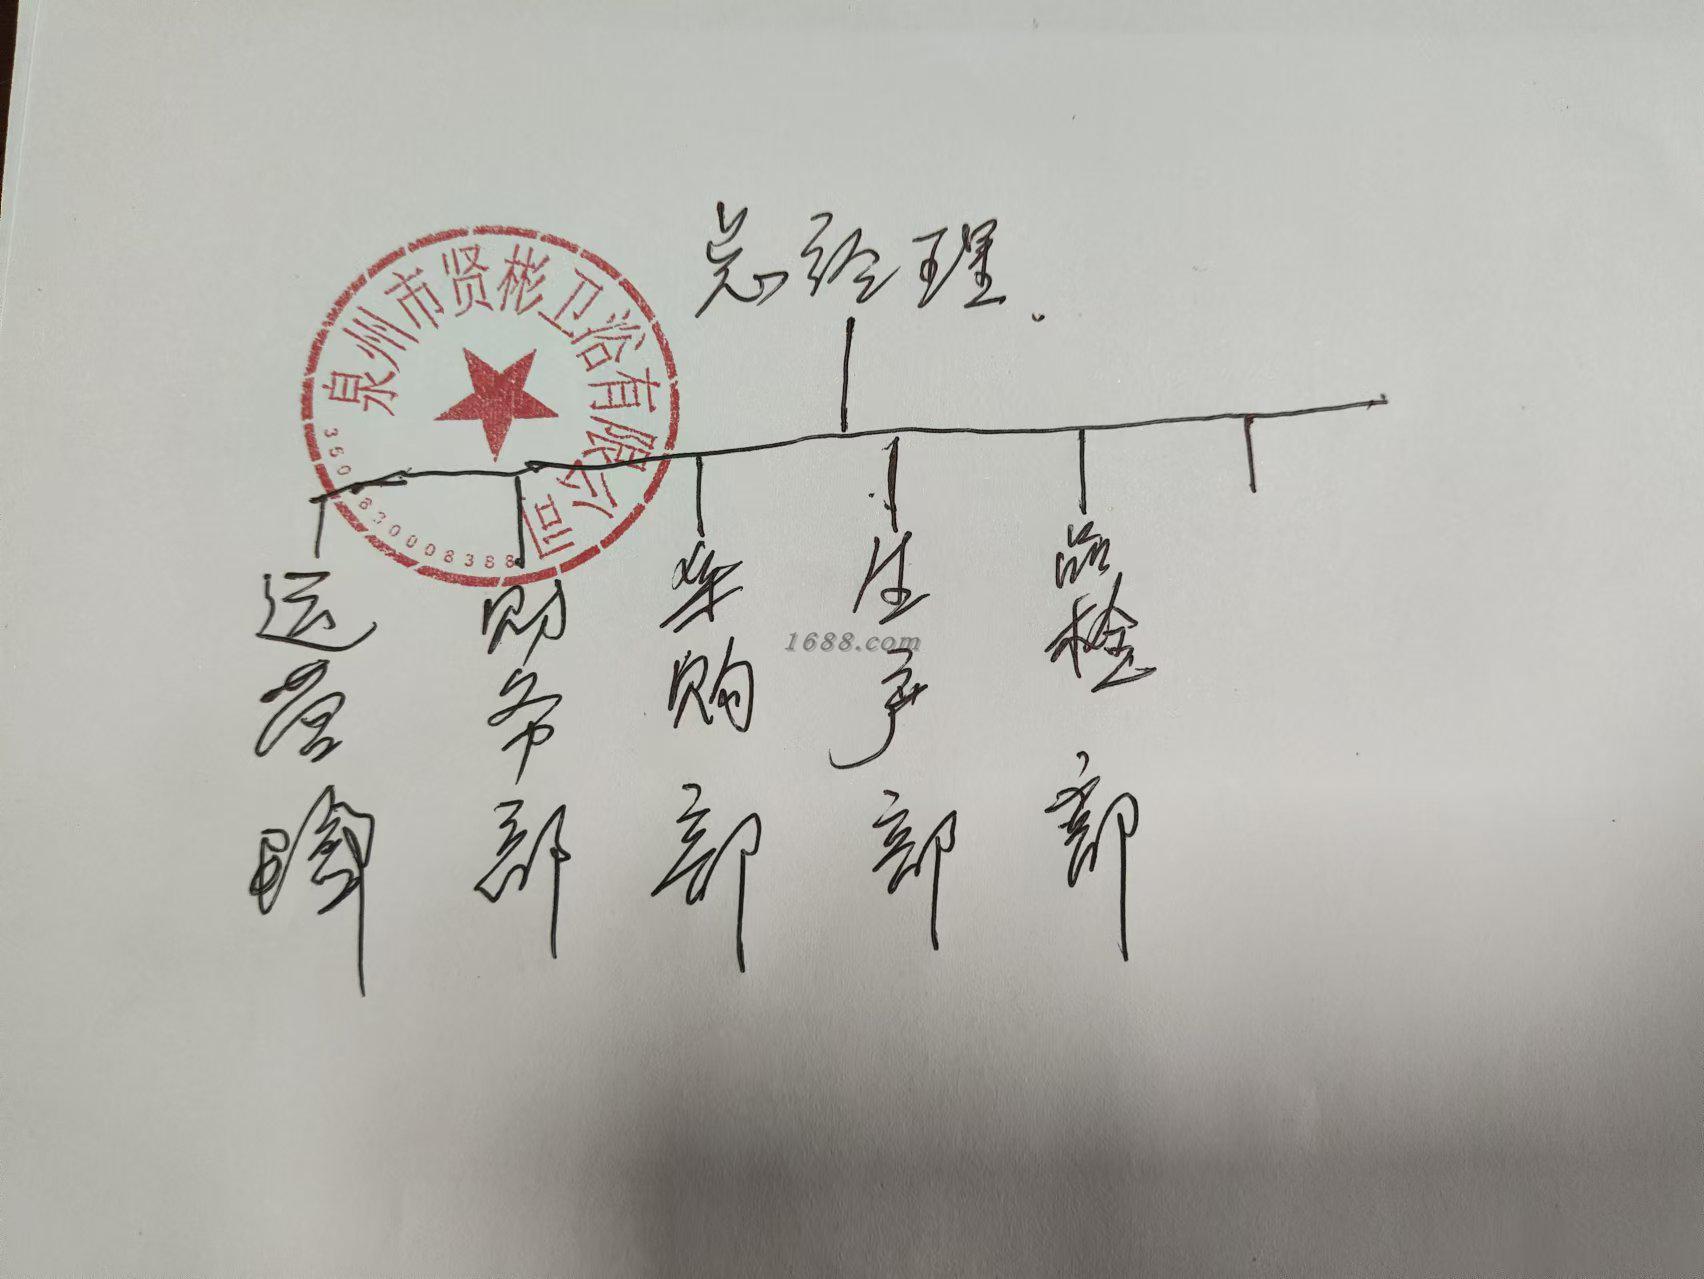 总经理.
泉州市贤彬卫浴有限公司
运营部
财务部
采购部
生产部
品检部
1688.com